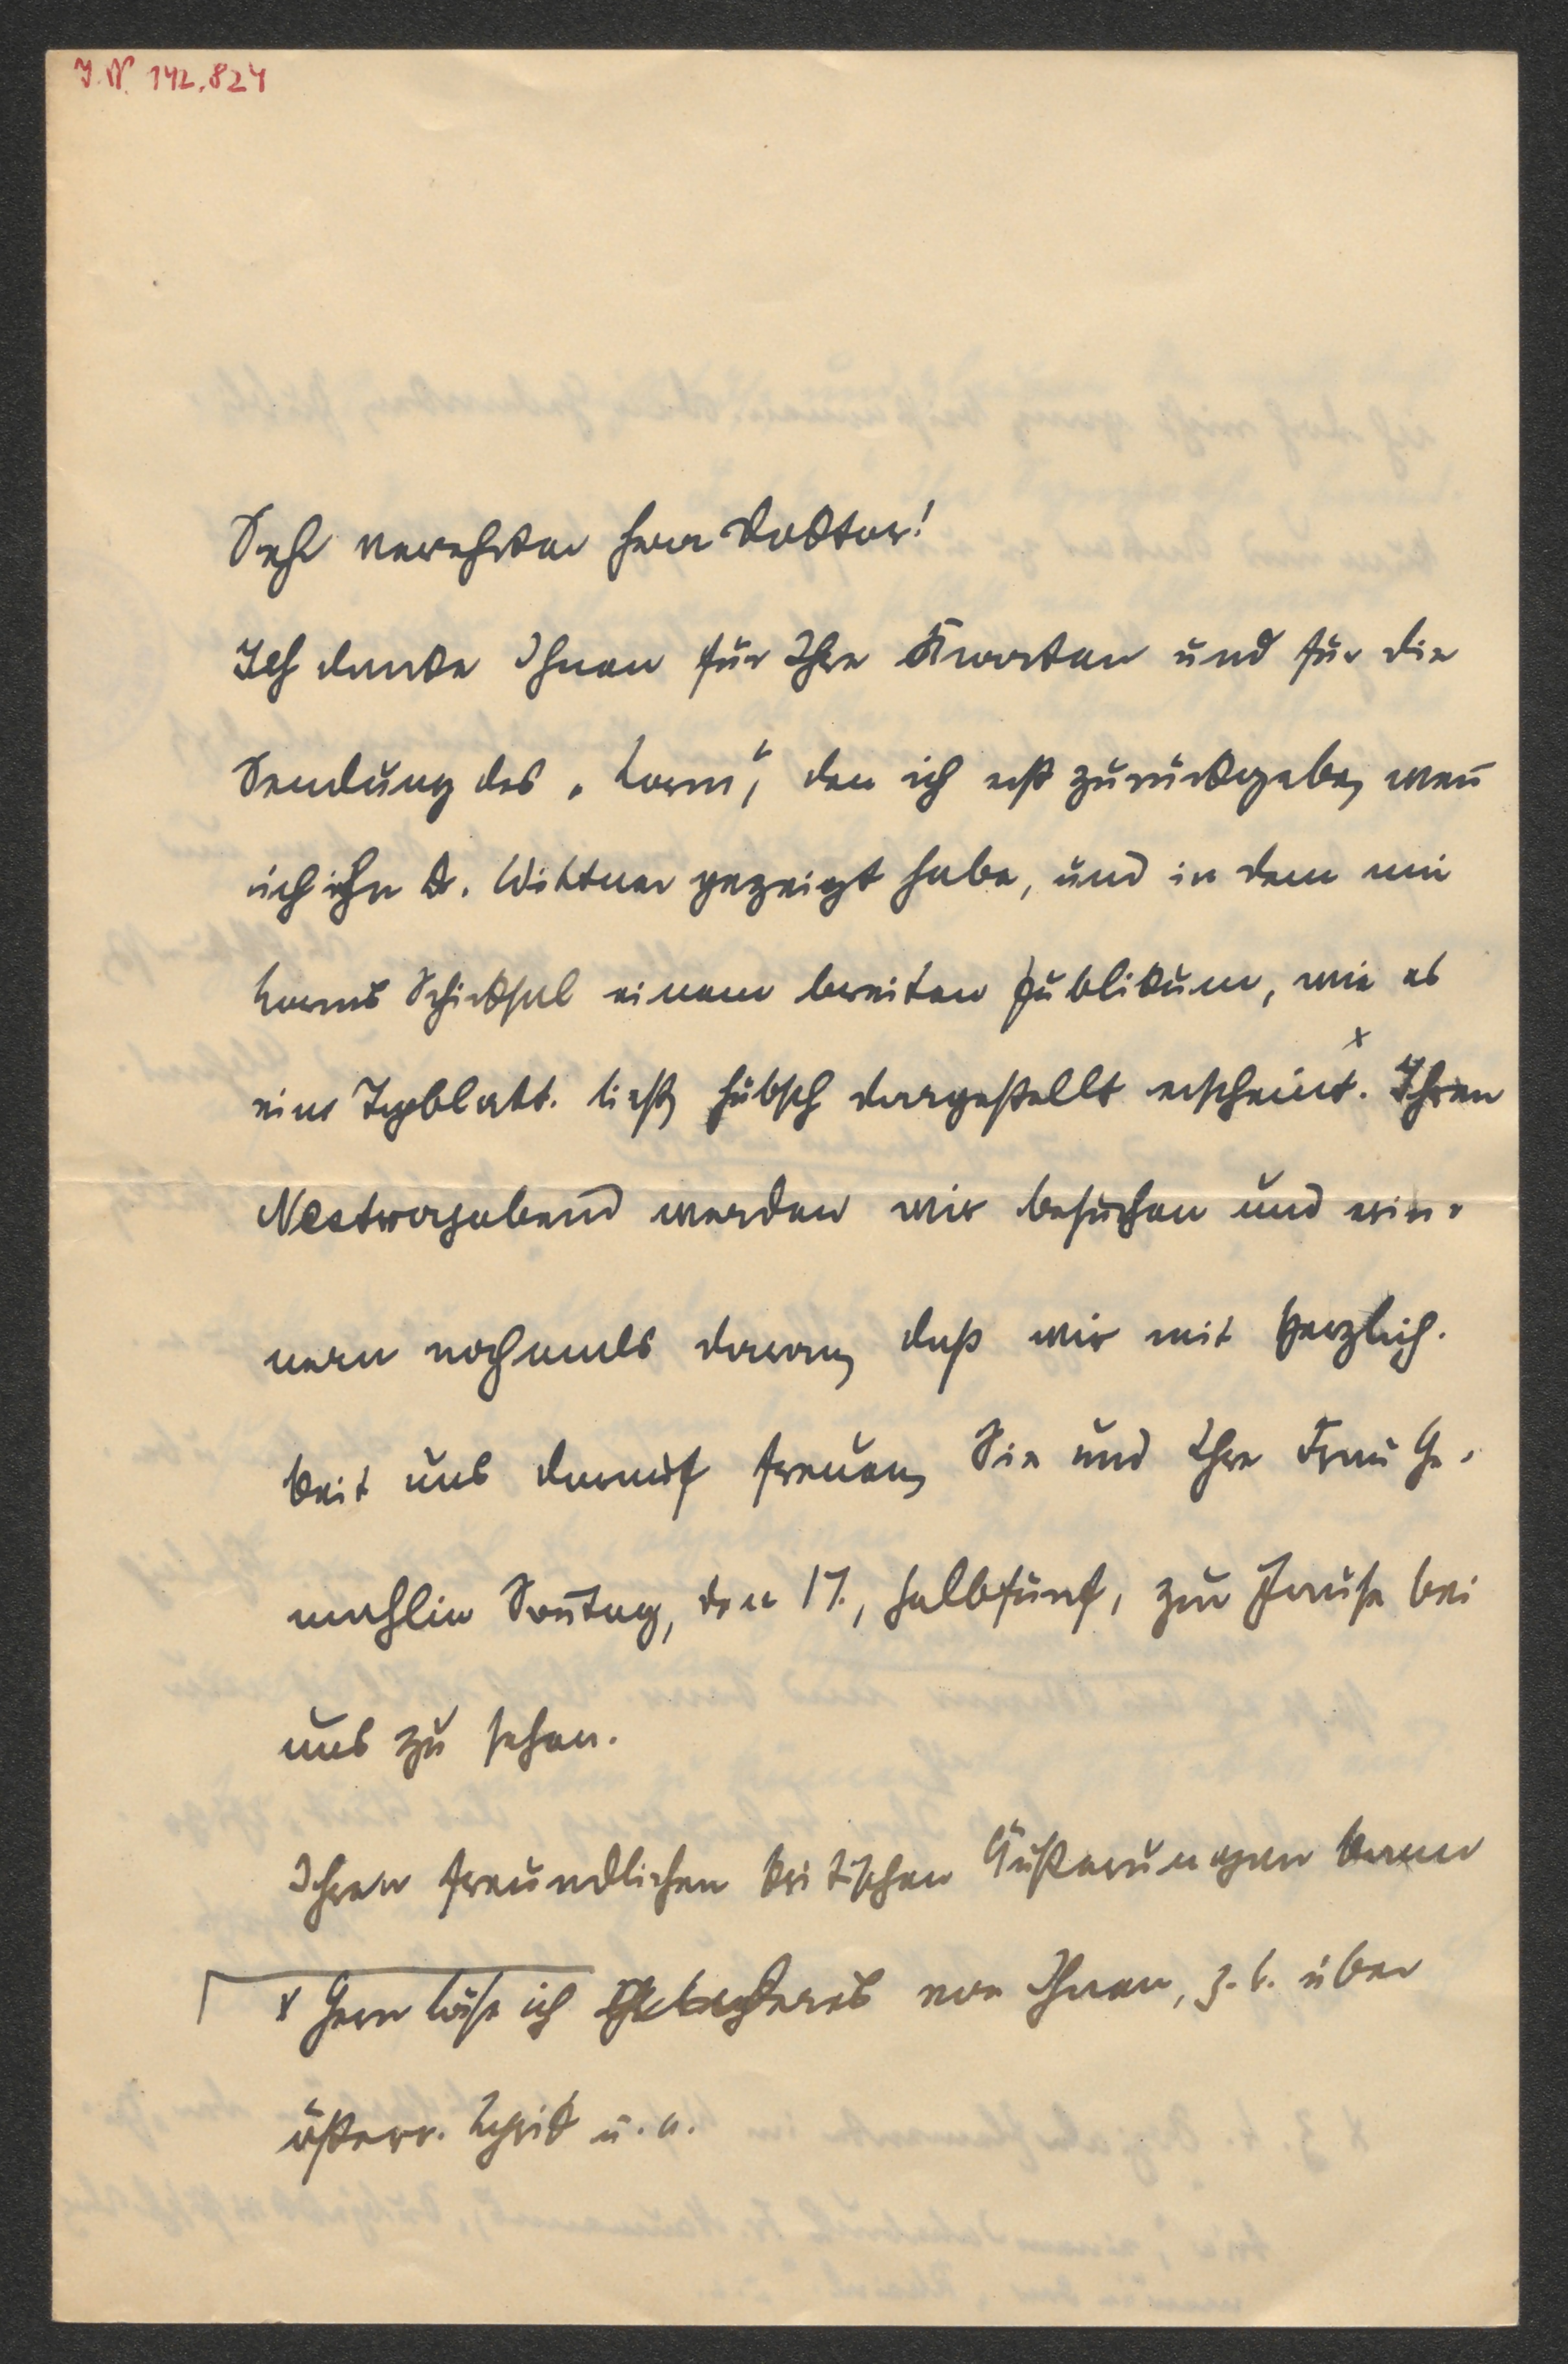 I.N. 142.824
Sehr verehrter Herr Doktor!
Ich danke Ihnen für Ihre Karten und für die
Sendung des „Lorm“, den ich erst zurückgebe, weñ
ich ihn Dr. Wittner gezeigt habe, und in dem mir
Lorms Schicksal einem breiten Publikum, wie es
eine Tagblatt. liest, hübsch dargestellt erscheint. x Ihren
Nestroyabend werden wir besuchen und erin-
nern nochmals daran, daß wir mit Herzlich-
keit uns darauf freuen, Sie und Ihre Frau Ge-
mahlin Soñtag, den 17., halbfünf, zur Jause bei
uns zu sehen.
Ihren freundlichen kritischen Äußerungen kann
x Gern läse ich von Ihnen, z. B. über
österr. Lyrik u. a.